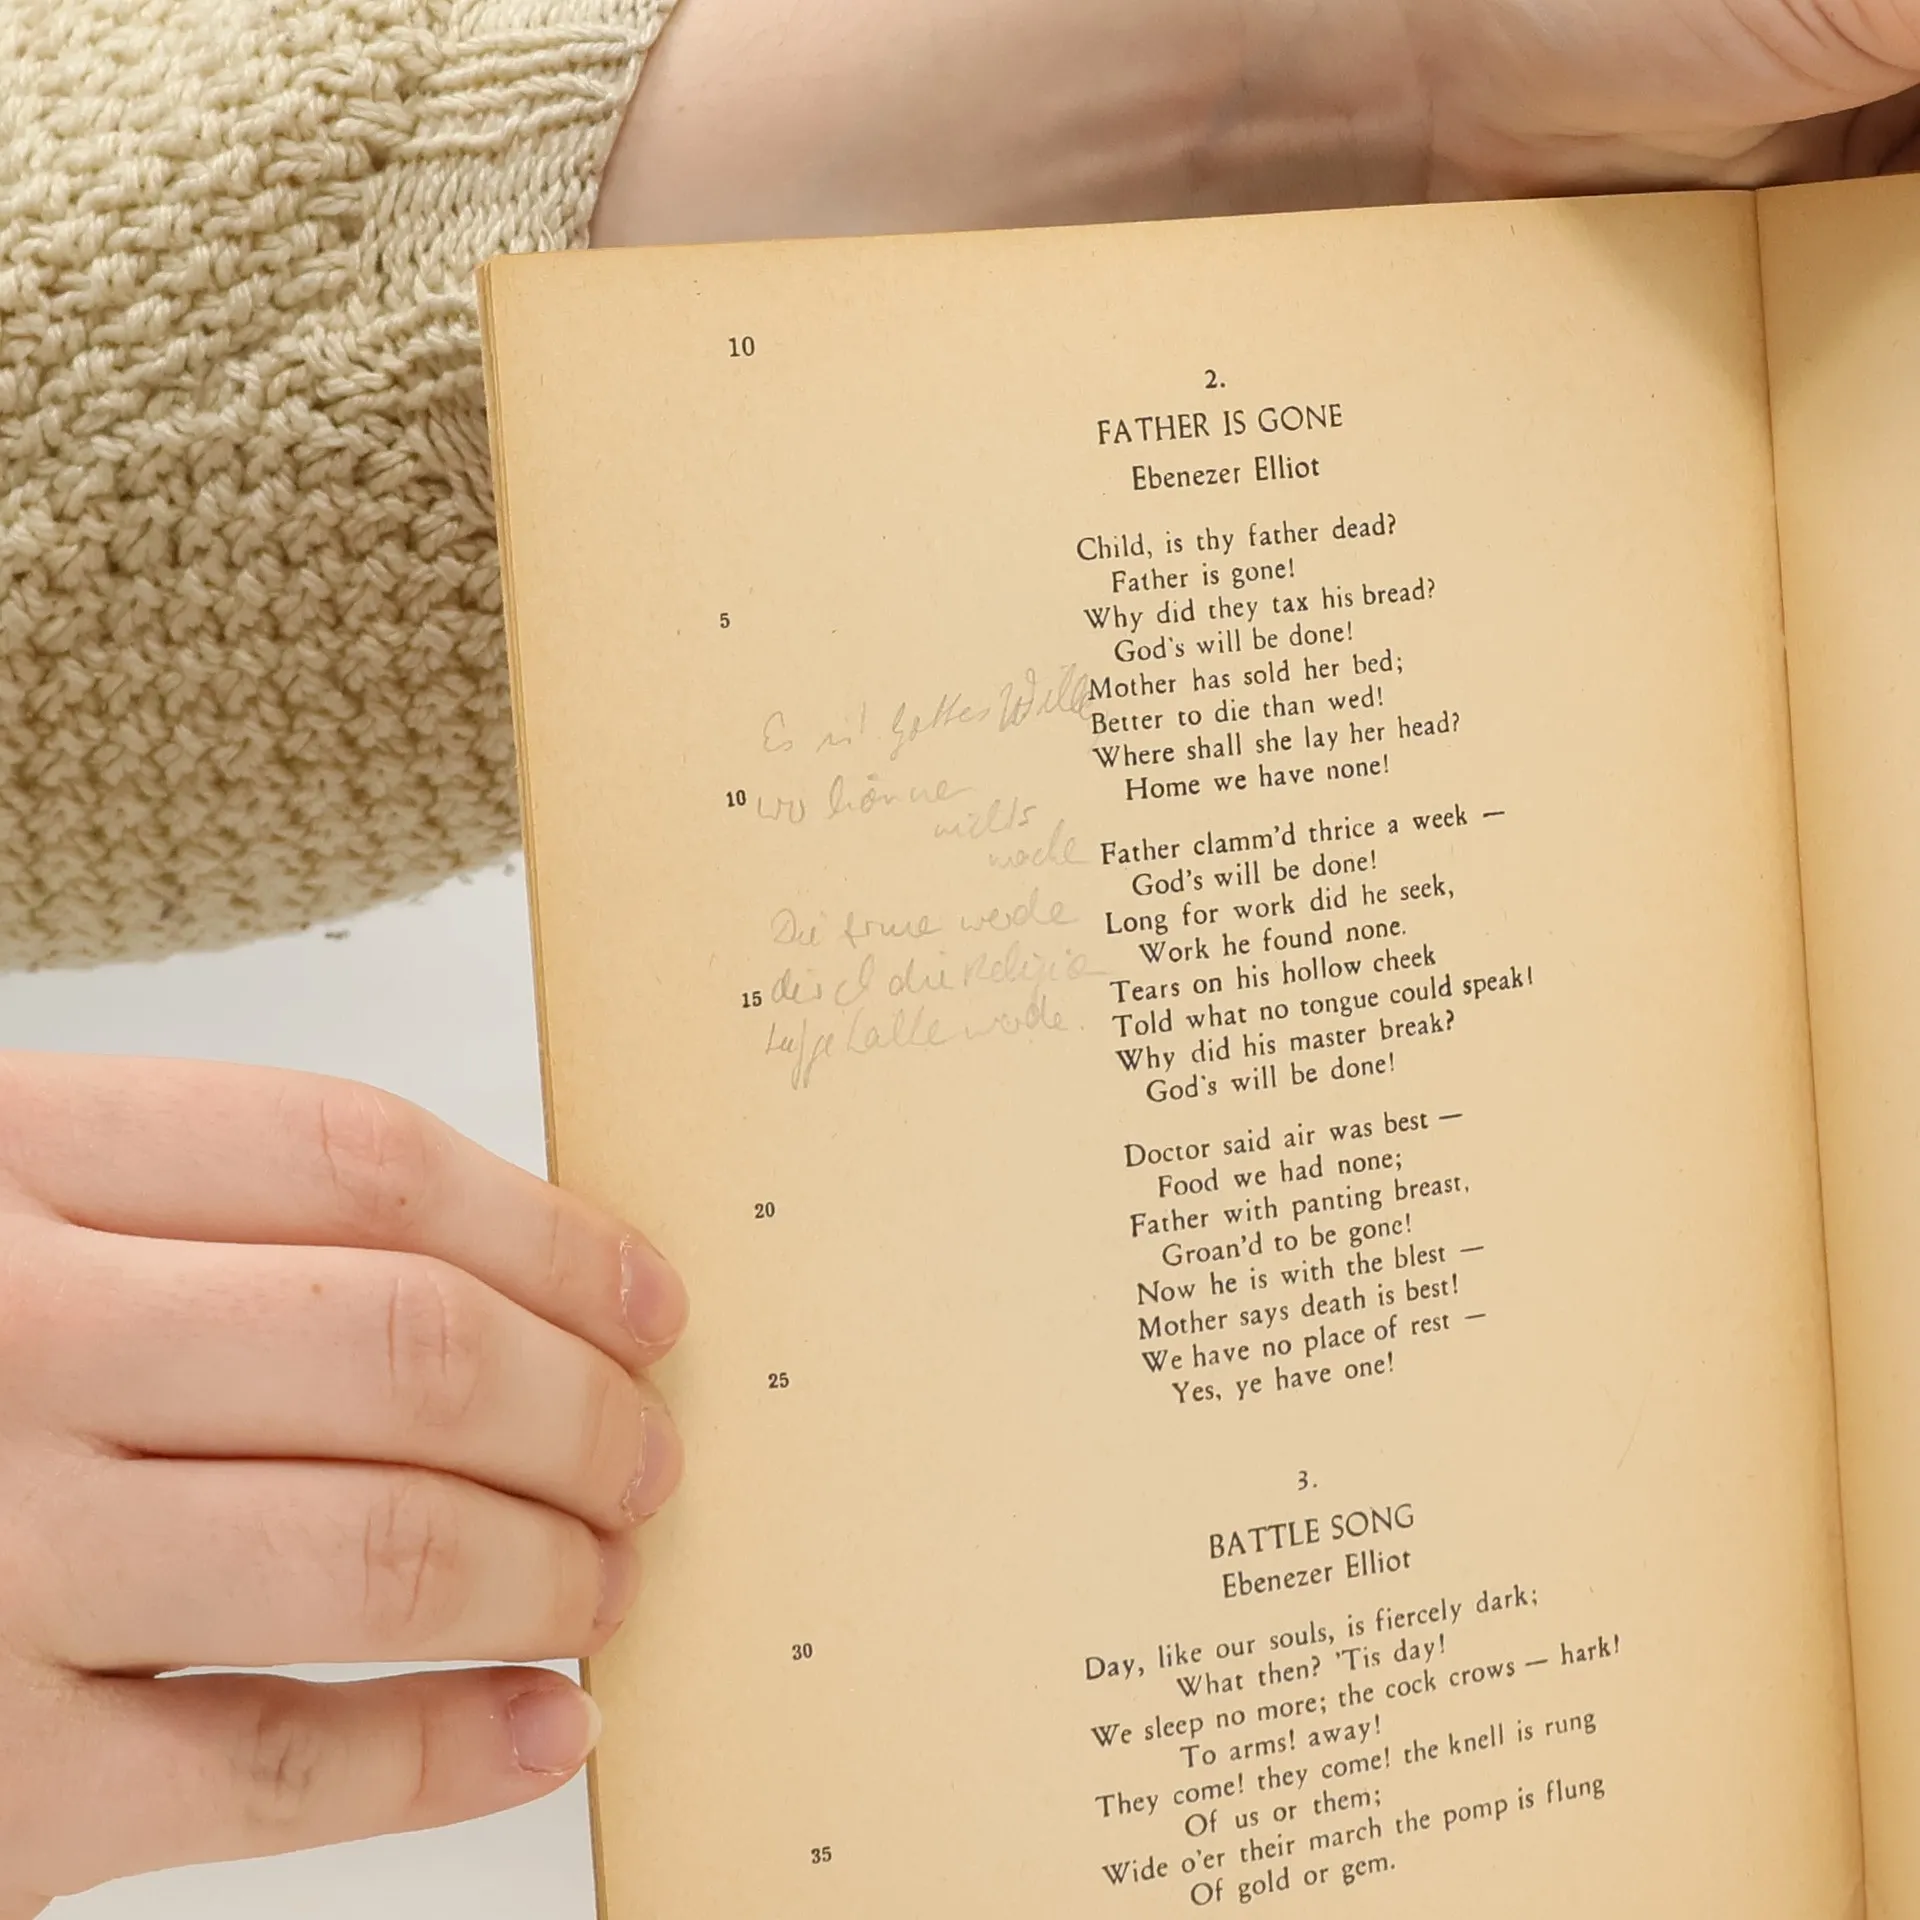 10
2.
FATHER IS GONE
Ebenezer Elliot
Child, is thy father dead?
Father is gone!
5 Why did they tax his bread?
God's will be done!
Mother has sold her bed;
Better to die than wed!
Where shall she lay her head?
10 Home we have none!
Es ist Gottes Wille
wo könne
nichts
mache
Father clamm'd thrice a week —
God's will be done!
Long for work did he seek,
Work he found none.
15 Tears on his hollow cheek
Told what no tongue could speak!
Why did his master break?
God's will be done!
Die Arme werde
durch die Religio
werde.
Doctor said air was best —
Food we had none;
20 Father with panting breast,
Groan'd to be gone!
Now he is with the blest —
Mother says death is best!
We have no place of rest —
25 Yes, ye have one!
3.
BATTLE SONG
Ebenezer Elliot
Day, like our souls, is fiercely dark;
What then? 'Tis day!
30 We sleep no more; the cock crows — hark!
To arms! away!
They come! they come! the knell is rung
Of us or them;
Wide o'er their march the pomp is flung
35 Of gold or gem.